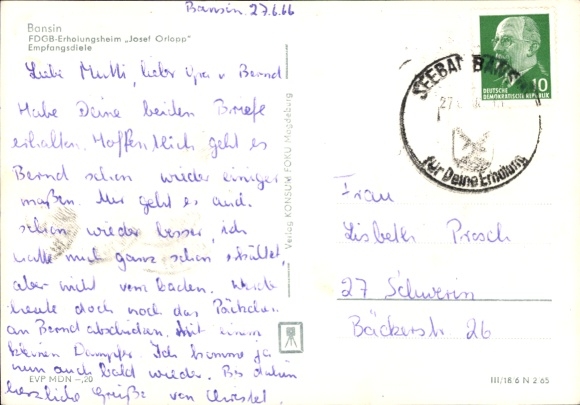 Bansin, 27.6.66
Bansin
FDGB-Erholungsheim „Josef Orlopp"
Empfangsdiele
Liebe Mutti, lieber Opa u Bernd
Habe Deine beiden Briefe
erhalten. Hoffentlich geht es
Bernd schon wieder einiger
maßen. Mir geht es auch
schon wieder besser, ich
hatte mich ganz schön erkältet,
aber nicht vom baden. Werde
heute doch noch das Päckchen
an Bernd abschicken. Mit einem
kleinen Dampfer. Ich komme ja
nun auch bald wieder. Bis dahin
herzliche Grüße von Christel
EVP MDN –,20
Verlag KONSUM FOKO Magdeburg
SEEBAD BANSIN
27.
für Deine Erholung
10
DEUTSCHE
DEMOKRATISCHE REPUBLIK
Frau
Lisbeth Prosch
27 Schwerin
Bäckerstr 26
III/18 6 N 2 65